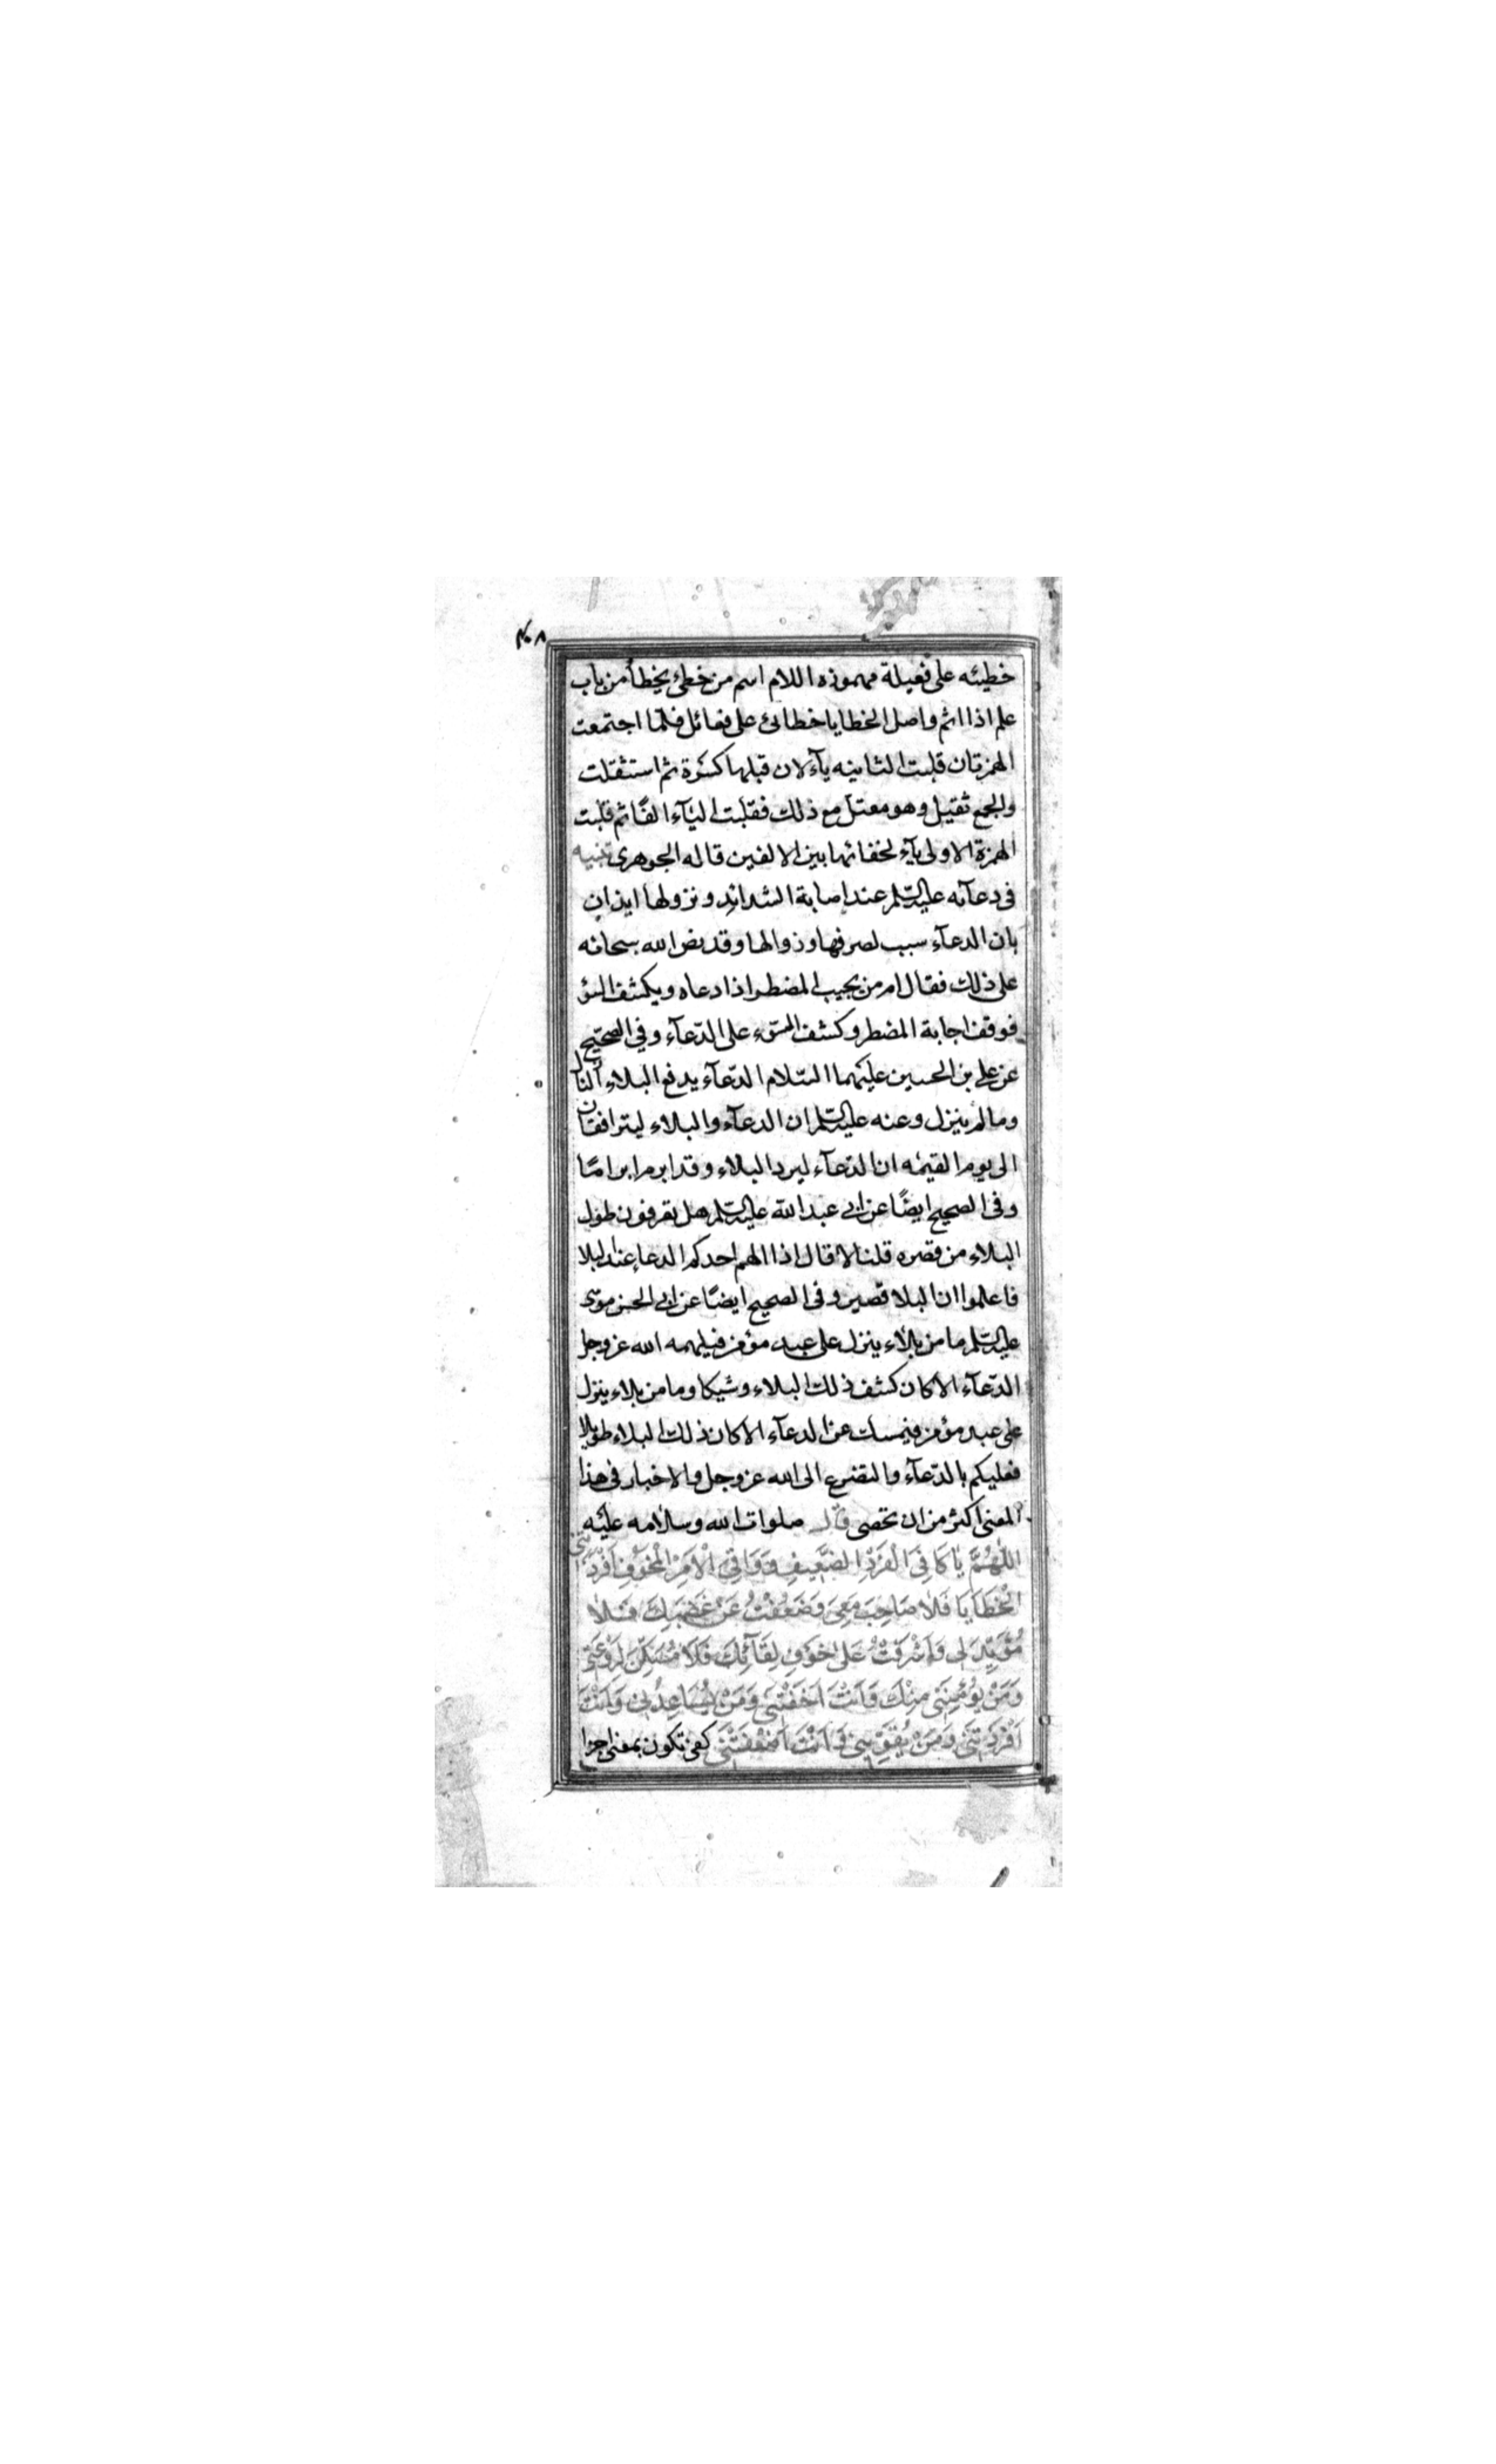 ٣٠٨
خطيئه على فعيلة مهموزه اللام اسم من خطئ يخطأ من باب
علم اذا اثم واصل الخطايا خطائئ على فعائل فلمّا اجتمعت
الهمزتان قلبت الثانيه يآء لان قبلها كسرة ثم استثقلت
والجمع ثقيل وهو معتل مع ذلك فقلبت اليآء الفًا ثم قلبت
الهمزة الاولى يآء لخفائها بين الالفين قاله الجوهرى تنبيه
فى دعآئه عليه السلم عند اصابة الشدائد ونزولها ايذان
بان الدعآء سبب لصرفها وزوالها وقد نص الله سبحانه
على ذلك فقال ام من يجيب المضطر اذا دعاه ويكشف السؤ
فوقف اجابة المضطر وكشف السّوء على الدّعآء وفي الصحّيح
عن على بن الحسين عليهما السّلام الدّعآء يدفع البلاء النازل
وما لم ينزل وعنه عليه السلم ان الدعآء والبلاء ليترافقان
الى يوم القيمه ان الدّعآء ليرد البلاء وقد ابرم ابرامًا
وفى الصحيح ايضًا عن ابى عبد الله عليه السلم هل تعرفون طول
البلاء من قصره قلنا لا قال اذا الهم احدكم الدعاء عند البلا
فاعلموا ان البلا قصير وفى الصحيح ايضًا عن ابى الحسن موسى
عليه السلم ما من بلاء ينزل على عبد مؤمن فيلهمه الله عز وجل
الدّعآء الا كان كشف ذلك البلاء وشيكا وما من بلاء ينزل
على عبد مؤمن فيمسك عن الدعآء الا كان ذلك البلاء طويلا
فعليكم بالدّعآء والتضرع الى الله عز وجل والاخبار فى هذا
المعنى اكثر من ان تحصى قال صلوات الله وسلامه عليه
اَللّٰهُمَّ يا كَافِىَ الْفَرْدِ الضَّعِيفِ وَوَاقِىَ الْاَمْرِ الْمَخُوفِ اَفْرَدَتْنِى
الْخَطَايَا فَلاٰ صَاحِبَ مَعِىَ وَضَعُفْتُ عَنْ غَضَبِكَ فَلاٰ
مُؤَيِّدَ لى وَاَشْرَفْتُ عَلىٰ خَوْفِ لِقَآئِكَ فَلاَ مُسَكِّنَ لِرَوْعَتِى
وَمَنْ يُؤْمِنُنِى مِنْكَ وَاَنْتَ اَخَفْتَنِى وَمَنْ يُسَاعِدُنِى وَاَنْتَ
اَفْرَدْتَنِى وَمَنْ يُقَوِّينِى وَاَنْتَ اَضْعَفْتَنِى كفى تكون بمعنى اجزا